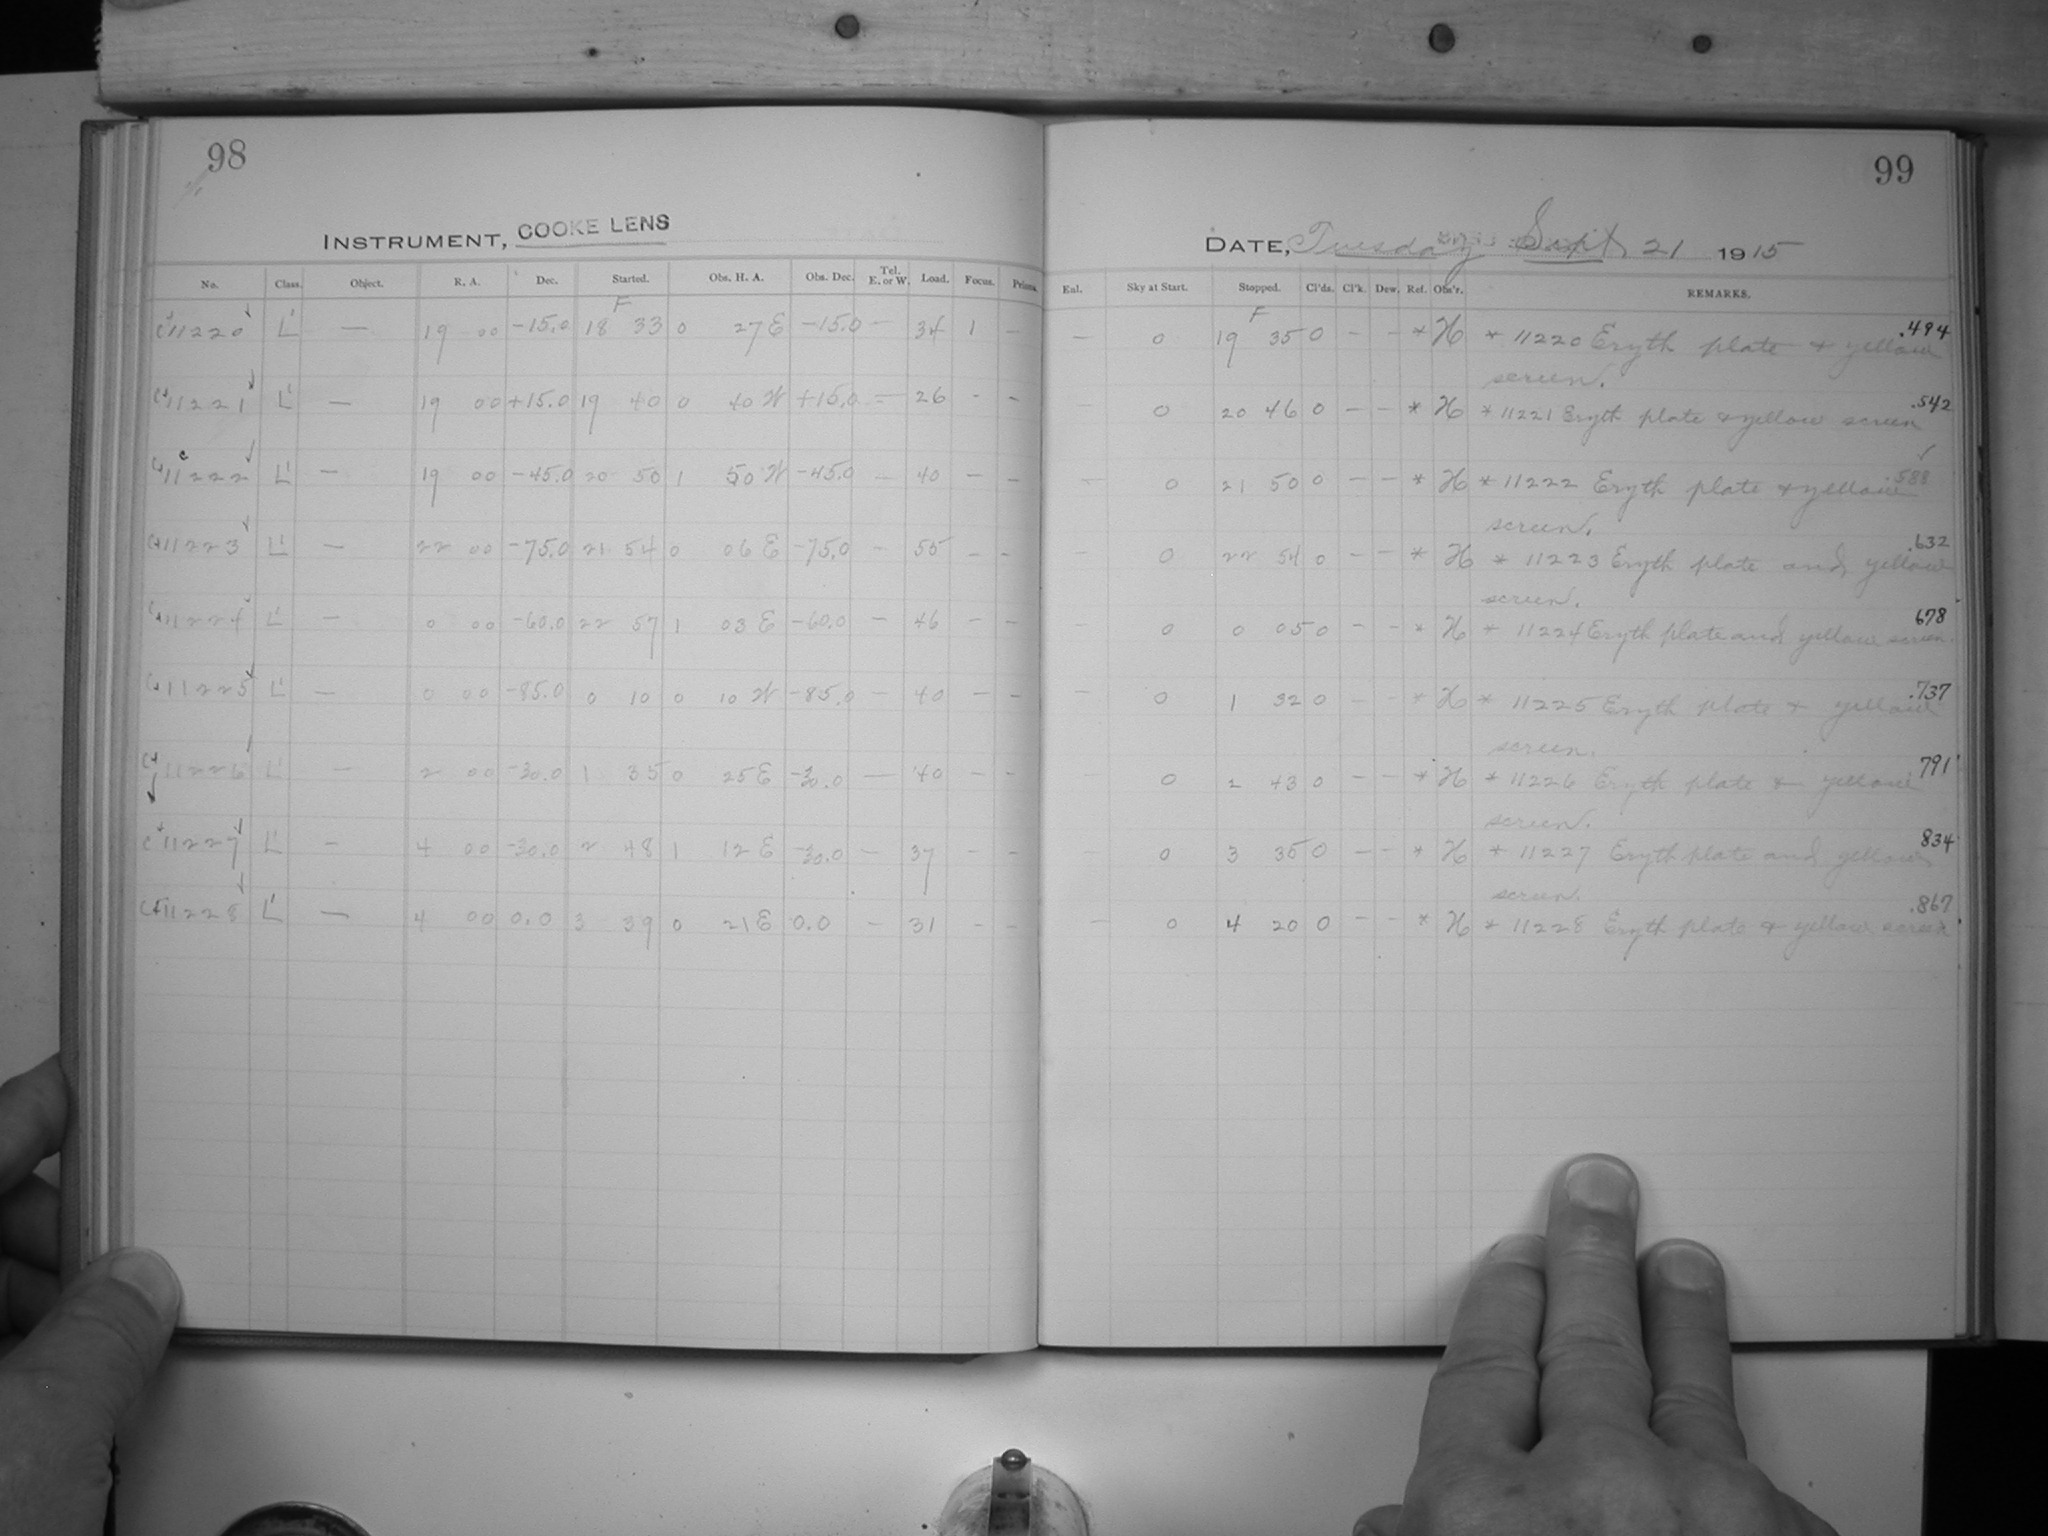 98
INSTRUMENT, COOKE LENS
No. Class. Object. R. A. Dec. Started. Obs. H. A. Obs. Dec. Tel. E. or W. Load. Focus. Prisms
F
C 11220 L' — 19 00 -15.0 18 33 0 27 E -15.0 — 34 1 —
11221 L' — 19 00 +15.0 19 40 0 40 W +15.0 — 26 - -
11222 L' — 19 00 -45.0 20 50 1 50 W -45.0 — 40 - -
11223 L' — 22 00 -75.0 21 54 0 06 E -75.0 - 55 - -
11224 L' — 0 00 -60.0 22 57 1 03 E -60.0 - 46 - -
11225 L' — 0 00 -85.0 0 10 0 10 W -85.0 — 40 - -
11226 L' — 2 00 -30.0 1 35 0 25 E -30.0 — 40 - -
11227 L' — 4 00 -30.0 2 48 1 12 E -30.0 — 37 - -
11228 L' — 4 00 0.0 3 39 0 21 E 0.0 - 31 - -
99
DATE, Tuesday Sept 21 1915
Enl. Sky at Start. Stopped. Cl'ds. Cl'k. Dew. Ref. Obs'r. REMARKS.
F
— 0 19 35 0 - - * H * 11220 Eryth plate & yellow .494
screen.
— 0 20 46 0 - - * H * 11221 Eryth plate & yellow screen .542
— 0 21 50 0 - - * H * 11222 Eryth plate & yellow .588
screen.
- 0 22 54 0 - - * H * 11223 Eryth plate and yellow .632
screen.
- 0 0 05 0 - - * H * 11224 Eryth plate and yellow screen. 678
— 0 1 32 0 - - * H * 11225 Eryth plate & yellow .737
screen.
- 0 2 43 0 - - * H * 11226 Eryth plate & yellow 791
screen.
- 0 3 35 0 - - * H * 11227 Eryth plate and yellow 834
screen.
— 0 4 20 0 - - * H * 11228 Eryth plate & yellow screen .867